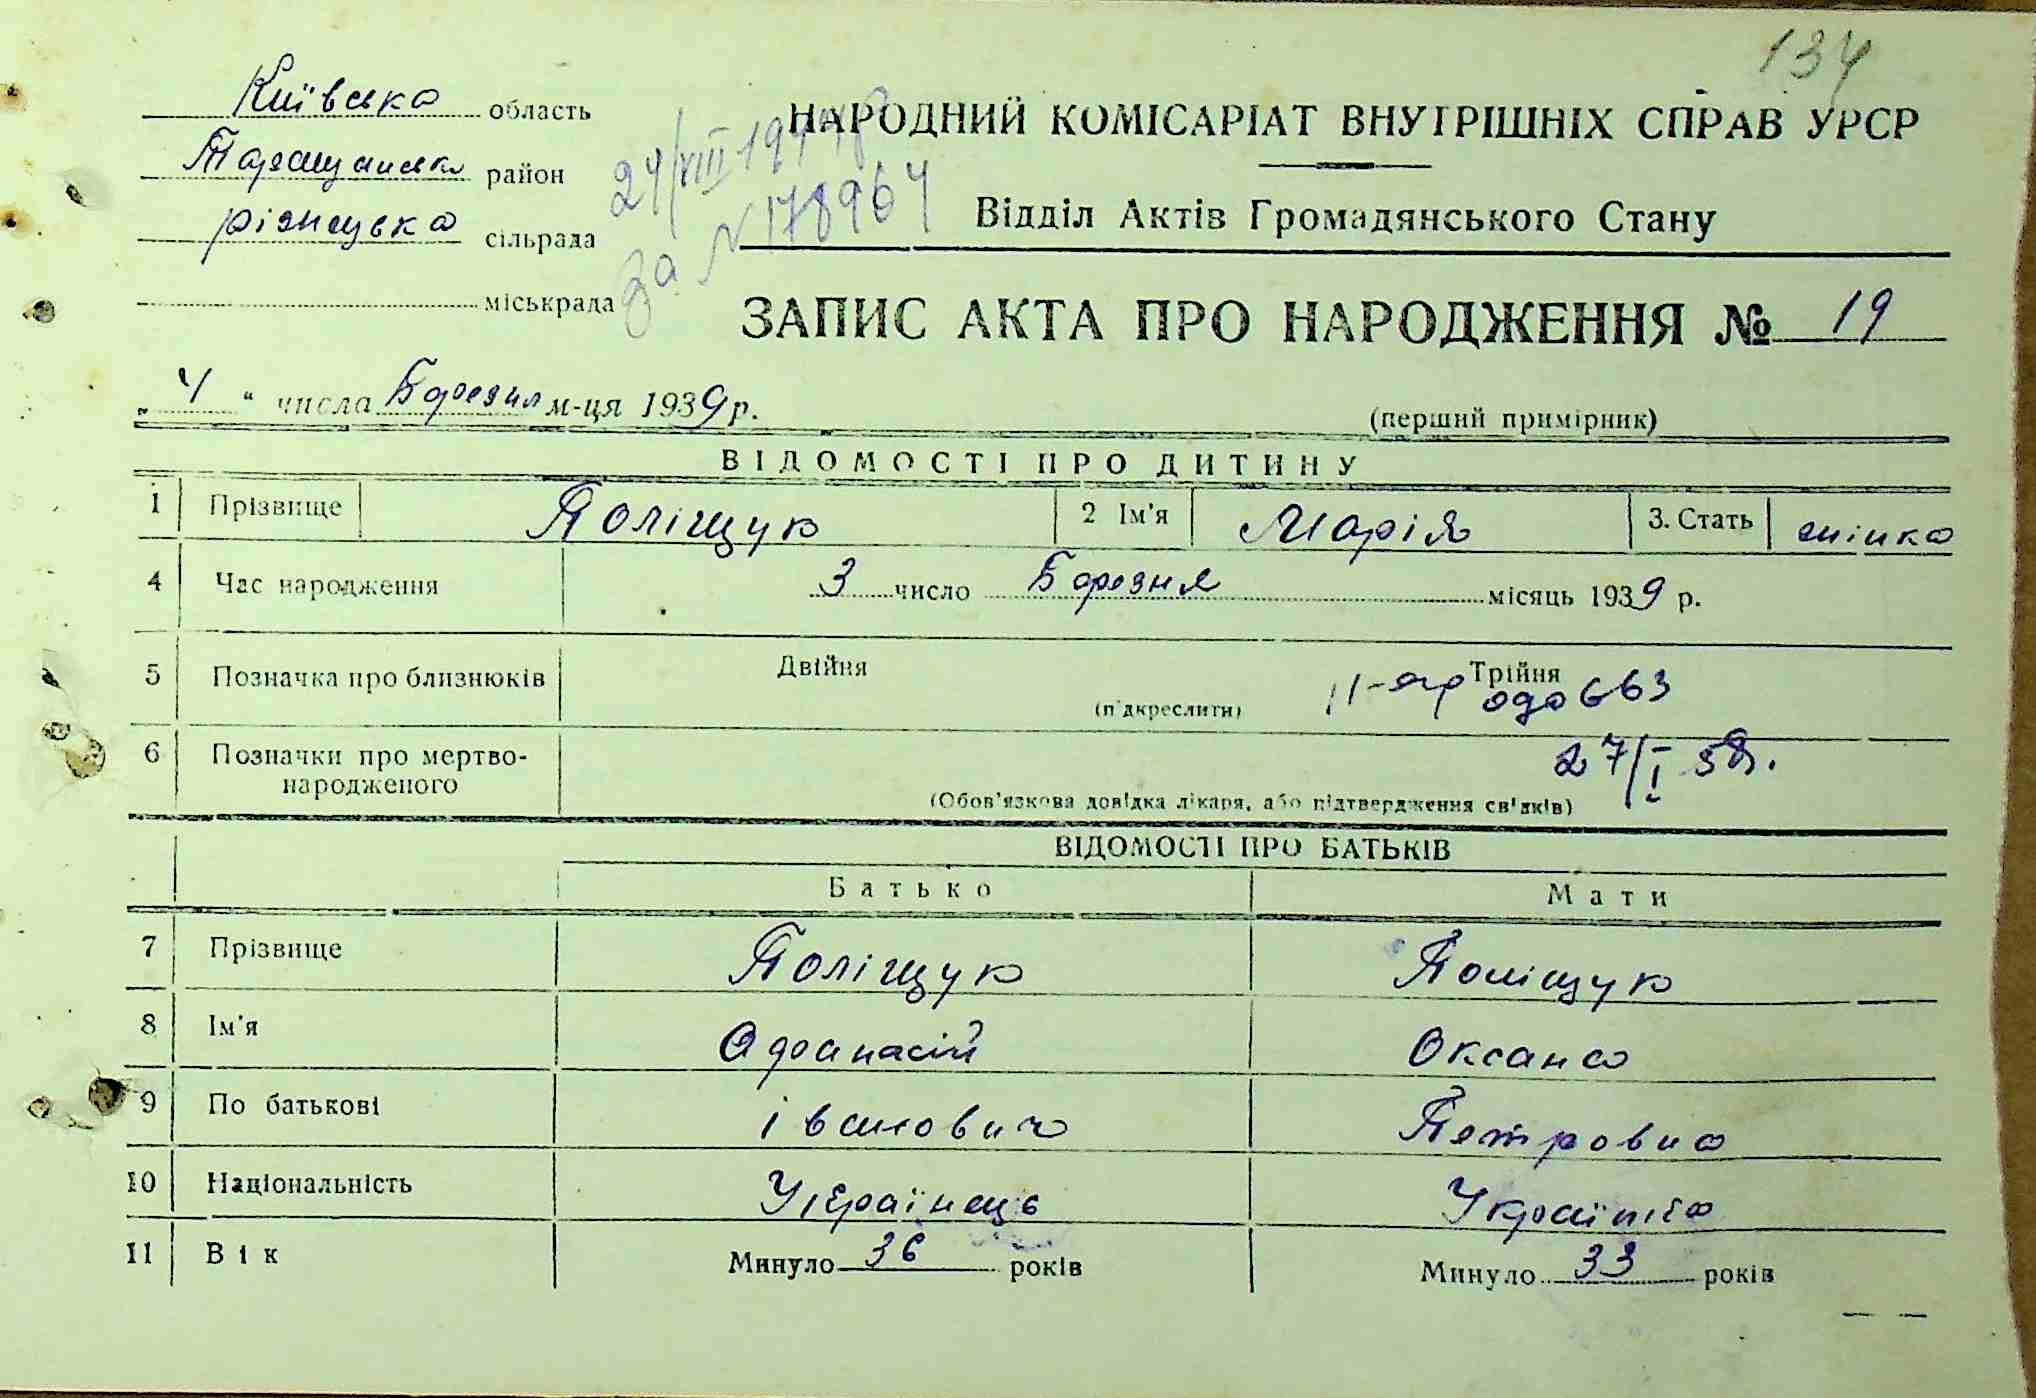 134
Київська область
НАРОДНИЙ КОМІСАРІАТ ВНУТРІШНІХ СПРАВ УРСР
Таращанськ район
сільрада
Відділ Актів Громадянського Стану
24/VIII 194
за № 178964
міськрада
ЗАПИС АКТА ПРО НАРОДЖЕННЯ № 19
„ 4 “ числа Березня м-ця 1939 р.
(перший примірник)
ВІДОМОСТІ ПРО ДИТИНУ
1 Прізвище Поліщук 2 Ім'я Марія 3. Стать жінка
4 Час народження 3 число Березня місяць 1939 р.
5 Позначка про близнюків Двійня Трійня
(підкреслити)
663
6 Позначки про мертво-
народженого
27/I
(Обов'язкова довідка лікаря, або підтвердження свідків)
ВІДОМОСТІ ПРО БАТЬКІВ
Батько Мати
7 Прізвище Поліщук Поліщук
8 Ім'я Афанасій Оксана
9 По батькові іванович Петровна
10 Національність Українець Українка
11 Вік Минуло 36 років Минуло 33 років